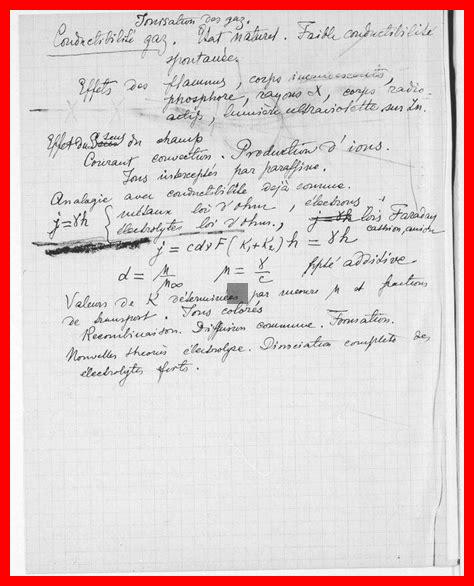 Ionisation des gaz.
Conductibilité gaz. Etat naturel. Faible conductibilité
spontanée
Effets des flammes, corps incandescents,
phosphore, rayons X, corps radio-
actifs, lumière ultraviolette sur Zn.
Effet du sens du champ
Courant convection. Production d'ions.
Ions interceptés par paraffine.
Analogie avec conductibilité déjà connue.
j = γh { métaux loi d'ohm, électrons
électrolytes loi d'ohm, j = γh lois Faraday
cathion, anion
j = cdνF(K₁+K₂)h = γh
d = μ/μ∞ μ = γ/c ppté additive
Valeurs de K déterminées par mesure μ et fractions
de transport. Ions colorés
Recombinaison. Diffusion commune. Formation.
Nouvelles théories électrolyse. Dissociation complète des
électrolytes forts.